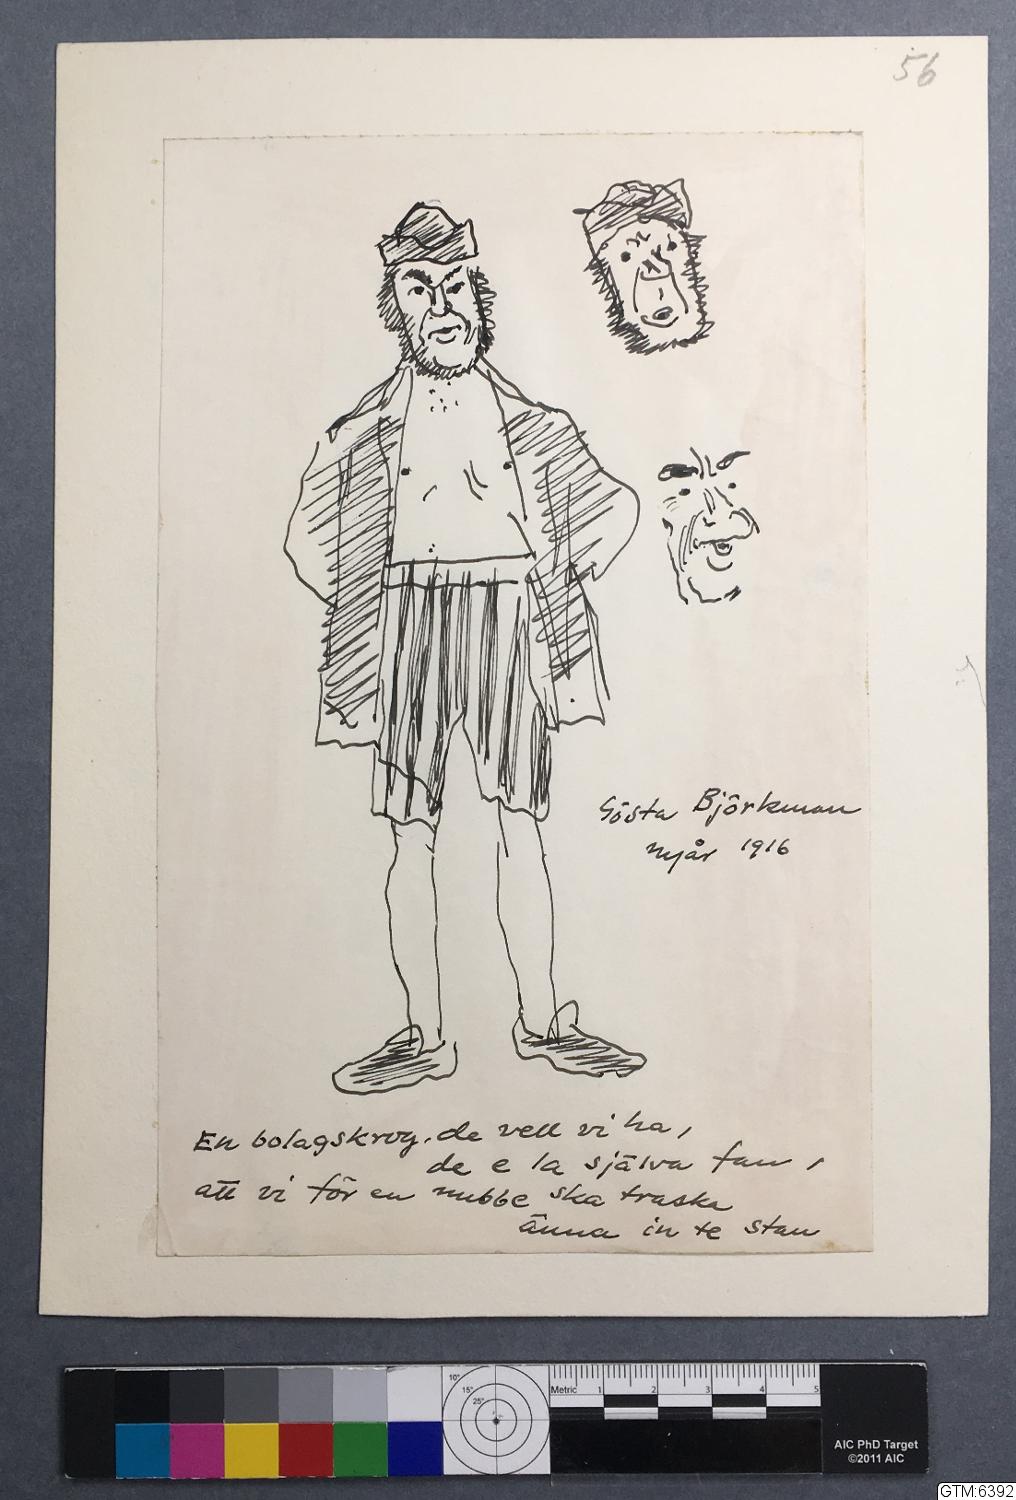 56
Gösta Björkman
nyår 1916
En bolagskrog, de vell vi ha,
de e la själva fan,
att vi för en nubbe ska traska
änna in te stan
10°
15°
25°
Metric 1 2 3 4 5
AIC PhD Target
©2011 AIC
GTM:6392